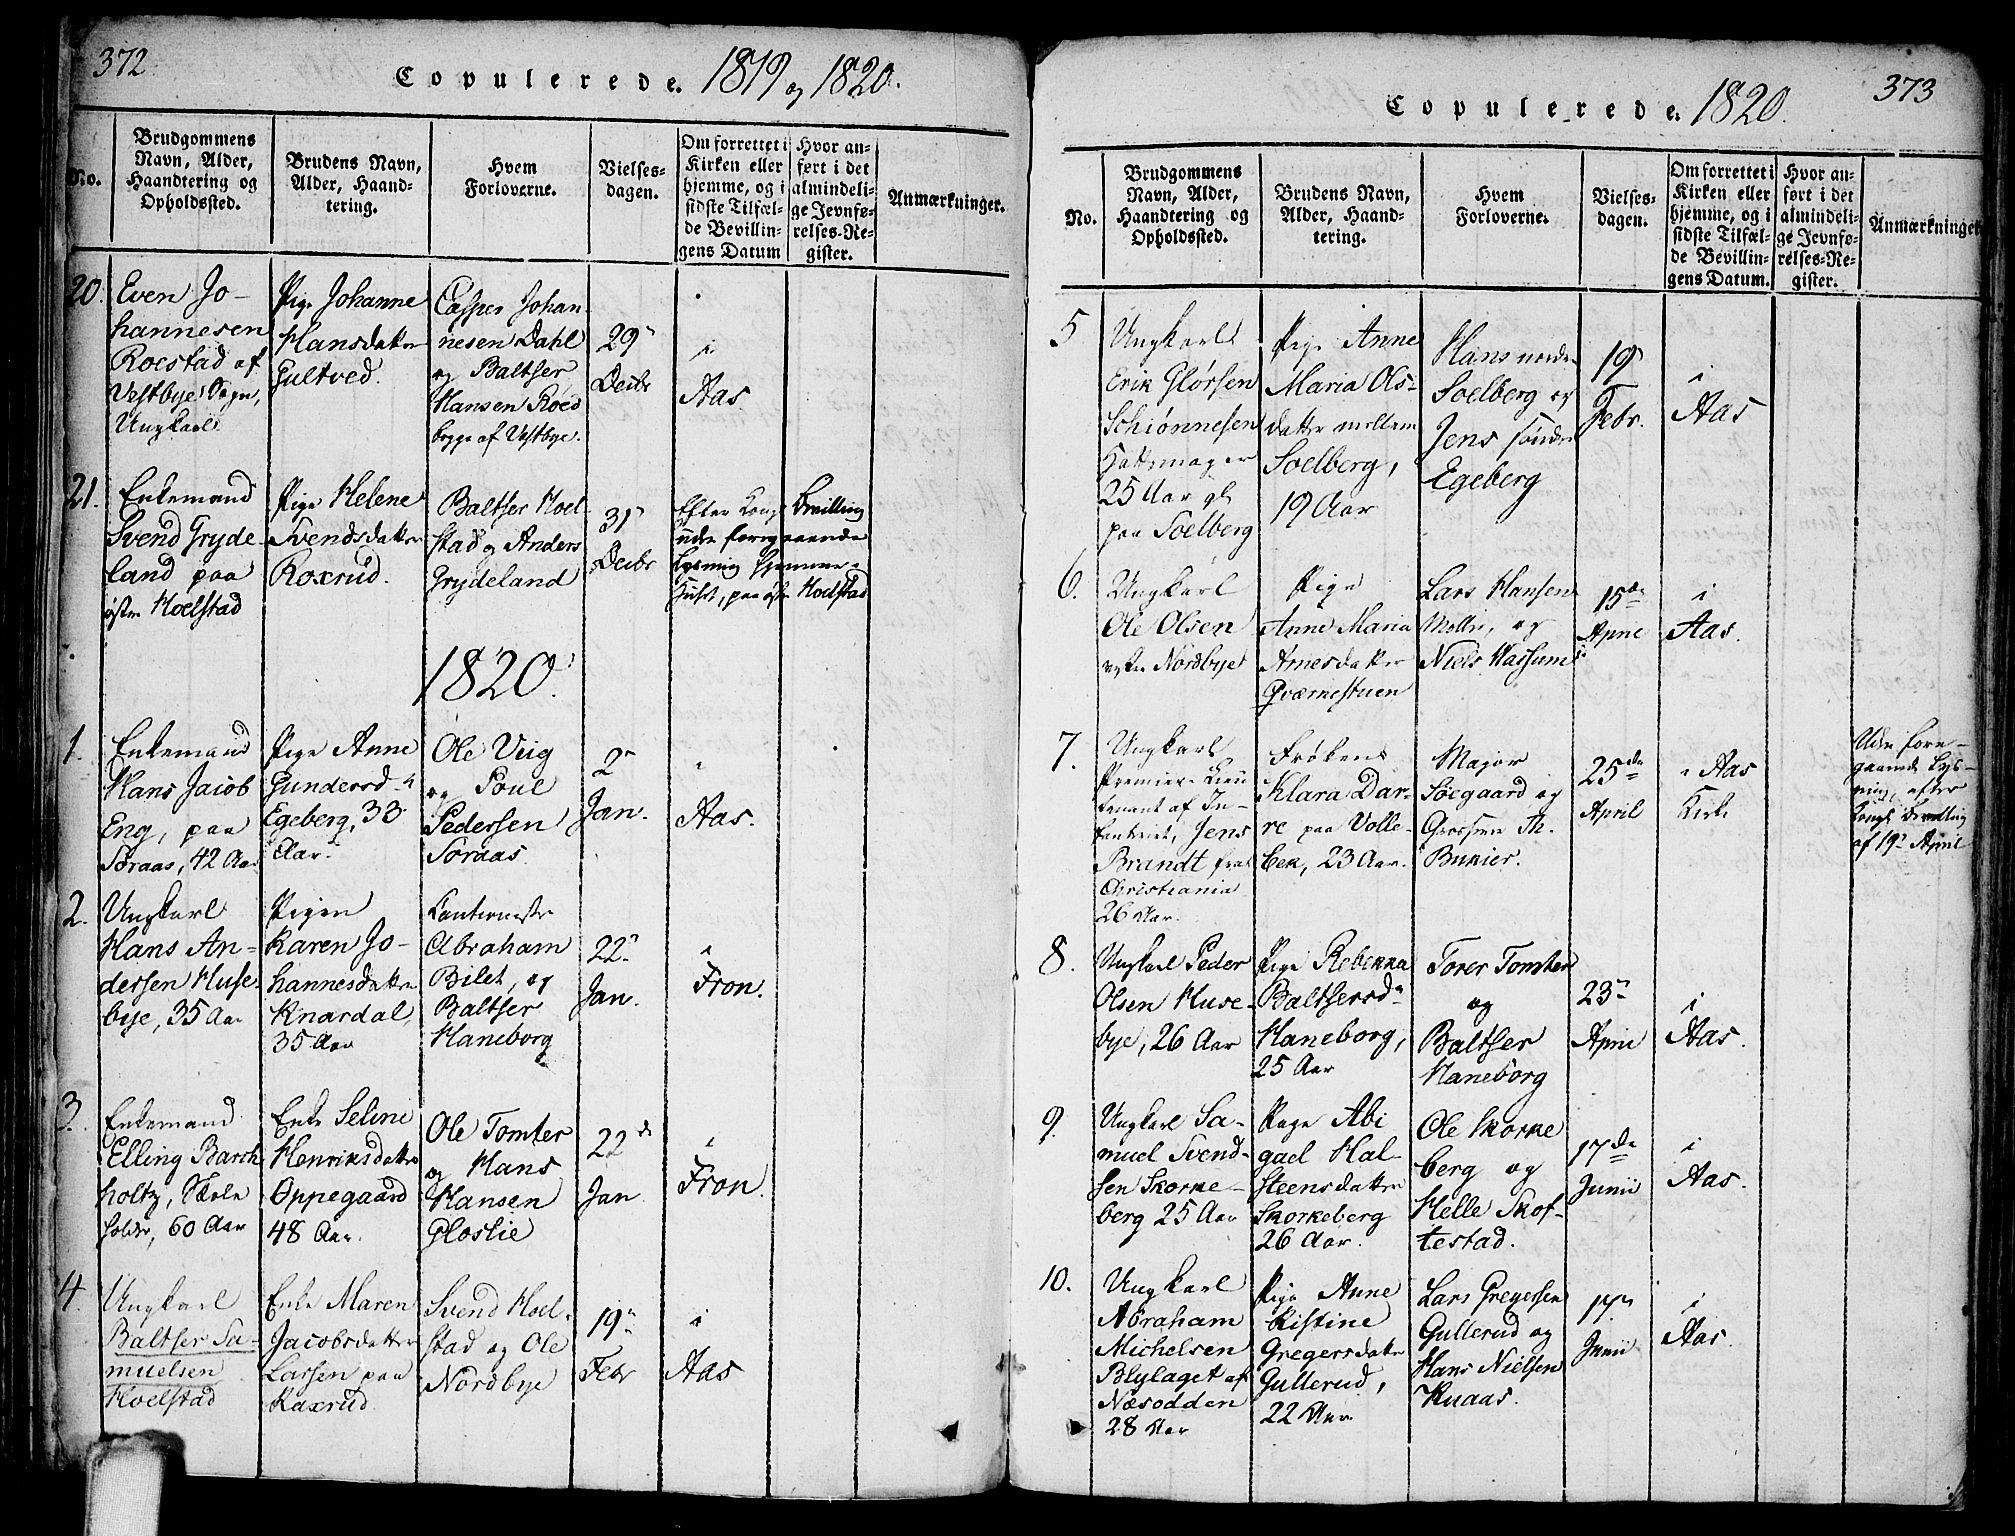 372
Copulerede. 1819 og 1820.
No.
Brudgommens
Navn, Alder,
Haandtering og
Opholdssted.
Brudens Navn,
Alder, Haand-
tering.
Hvem
Forloverne.
Vielses-
dagen.
Om forrettet i
Kirken eller
hjemme, og i
sidste Tilfæl-
de Bevillin-
gens Datum
Hvor an-
ført i det
almindeli-
ge Jevnfø-
relses-Re-
gister.
Anmærkninger.
20.
Even Jo-
hannesen
Roestad af
Vestbye Sogn,
Ungkarl
Pige Johanne
Hansdatter
Gultved.
Casper Johan
nesen Dahl
og Baltser
Hansen Roed
bygge af Vestbye.
29
Decbr
i
Aas
21.
Enkemand
Svend Gryde
land paa
østre Hoelstad
Pige Helene
Svendsdatter
Roxrud.
Baltser Hoel
stad og Anders
Grydeland
31
Decbr
Efter Kongl Bevilling
uden foregaaende
Lysning hjemme i
Huset, paa østre Hoelstad
1820.
1.
Enkemand
Hans Jacob
Eng, paa
Soraas, 42 Aar
Pige Anne
Gundersd
Egeberg, 33
Aar.
Ole Viig
og Poul
Pedersen
Soraas.
2
Jan.
i
Aas.
2.
Ungkarl
Hans An-
dersen Huse-
bye, 35 Aar
Pigen
Karen Jo-
hannesdatter
Knardal,
35 Aar
Abraham
Bilet, og
Baltser
Haneborg
22
Jan.
i
Fron.
3.
Enkemand
Elling Barch
holtz,
60 Aar
Enke Seline
Henriksdatter
Oppegaard
48 Aar.
Ole Tomter
og Hans
Hansen
Gloslie
22
Jan
i
Fron.
4.
Ungkarl
Baltser Sa-
muelsen
Hoelstad
Enke Maren
Jacobsdatter
Larsen paa
Raxrud
Svend Hoel-
stad og Ole
Nordbye
19
Febr
i
Aas
373
Copulerede. 1820.
No.
Brudgommens
Navn, Alder,
Haandtering og
Opholdssted.
Brudens Navn,
Alder, Haand-
tering.
Hvem
Forloverne.
Vielses-
dagen.
Om forrettet i
Kirken eller
hjemme, og i
sidste Tilfæl-
de Bevillin-
gens Datum.
Hvor an-
ført i det
almindeli-
ge Jevnfø-
relses-Re-
gister.
Anmærkninger
5
Ungkarl
Erik Glørsen
Schiønnesen
Hattemager
25 Aar gl
paa Soelberg
Pige Anne
Maria Ols-
datter mellem
Soelberg,
19 Aar
Hans nordre
Soelberg og
Jens søndre
Egeberg
19
Febr.
i
Aas
6.
Ungkarl
Ole Olsen
vestre Nordbye
Pige
Anne Maria
Arnesdatter
Qværnestuen
Lars Hansen
og
Niels Hassum
15de
April
i
Aas.
7.
Ungkarl
Premier Lieu
tenant af In-
fanteriet, Jens
Brandt fra
Christiania
26 Aar.
Frøken
Klara Dar-
re paa Volle-
bek, 23 Aar.
Major
Søegaard og
Th.
Bunier.
25de
April
i Aas
Kirke
Uden fore-
gaaende Lys-
ning, efter
Kongl Bevilling
af 19 April
8.
Ungkarl Peder
Olsen Huse-
bye, 26 Aar
Pige Rebekka
Baltsersd
Haneborg,
25 Aar
Torer Tomter
og
Baltser
Haneborg
23
April
i
Aas.
9.
Ungkarl Sa-
muel Svend-
sen Skorke-
berg 25 Aar
Pige Abi
gael Hal-
steensdatter
Skorkeberg
26 Aar.
Ole Skorke
berg og
Helle Skof-
testad.
17de
Junii
i
Aas.
10.
Ungkarl
Abraham
Michelsen
Blylaget af
Næsodden
28 Aar
Pige Anne
Kistine
Gregersdatr
Gullerud,
22 Aar
Lars Gregersen
Gullerud og
Hans Nielsen
Knaas.
17
Junii
i
Aas.